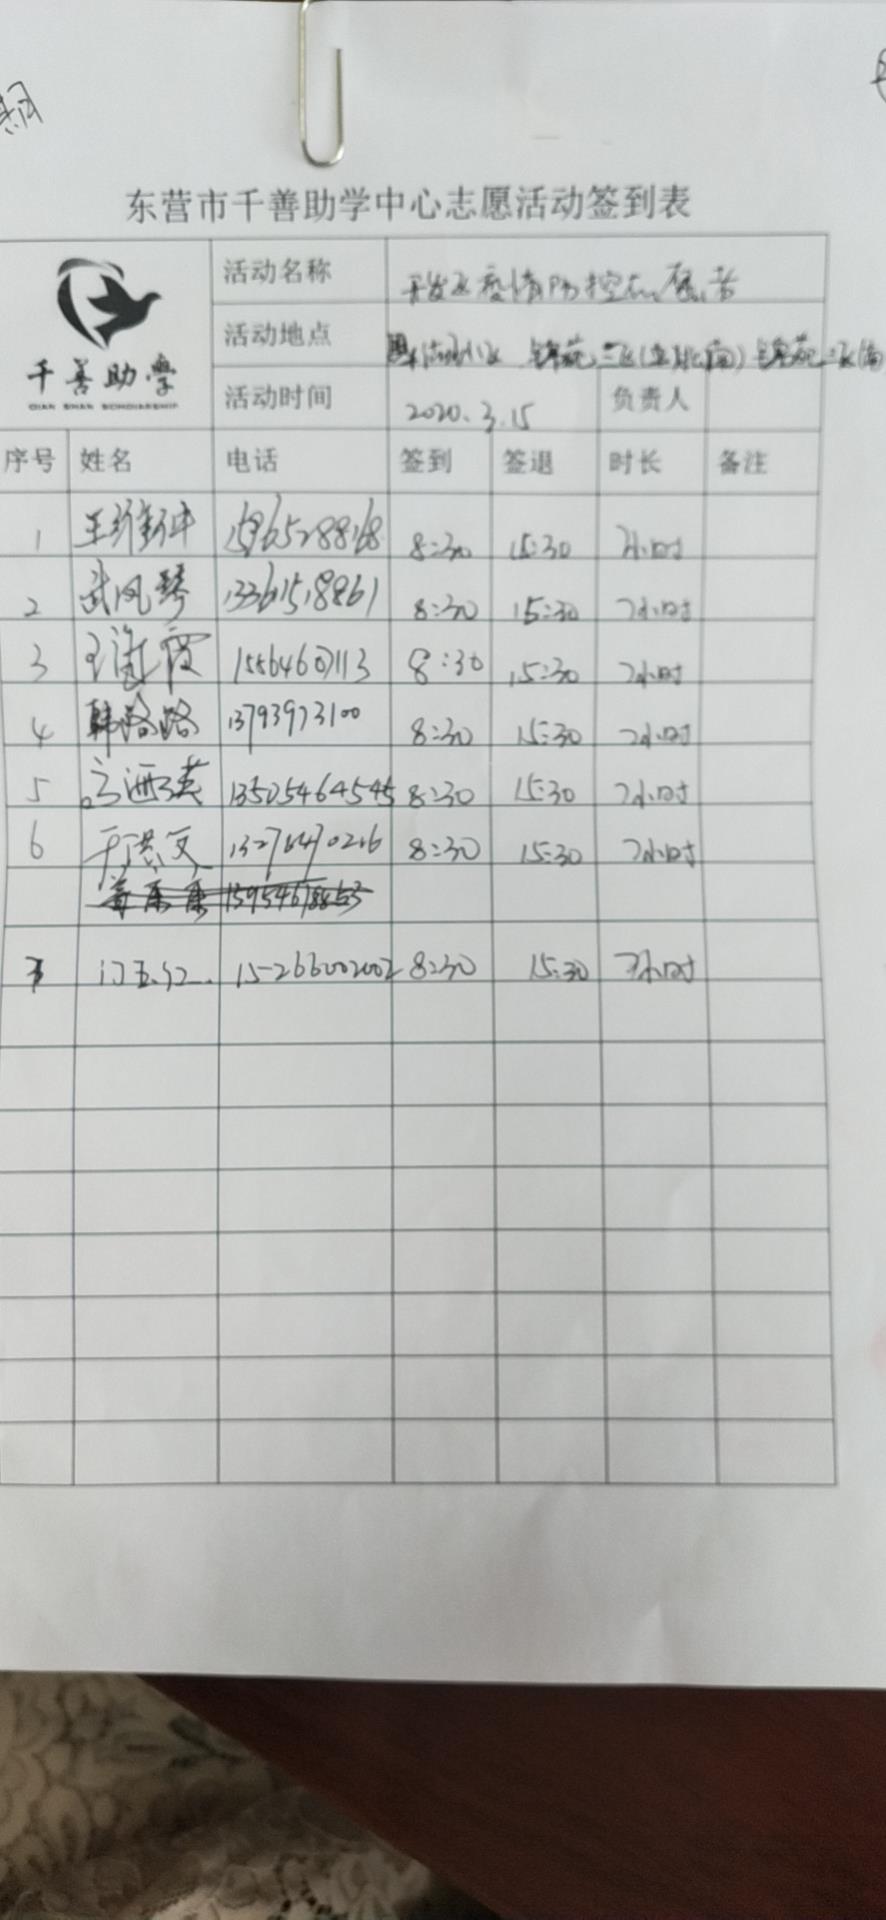 东营市千善助学中心志愿活动签到表
千善助學
QIAN SHAN SCHOLARSHIP
活动名称 开发区疫情防控志愿者
活动地点 锦苑三区
活动时间 2020.3.15 负责人
序号 姓名 电话 签到 签退 时长 备注
1 8:30 15:30 7小时
2 武凤琴 13361518861 8:30 15:30 7小时
3 王海霞 15564607113 8:30 15:30 7小时
4 韩路路 13793973100 8:30 15:30 7小时
5 13505464545 8:30 15:30 7小时
6 于洪文 13276470216 8:30 15:30 7小时
7 15266002002 8:30 15:30 7小时